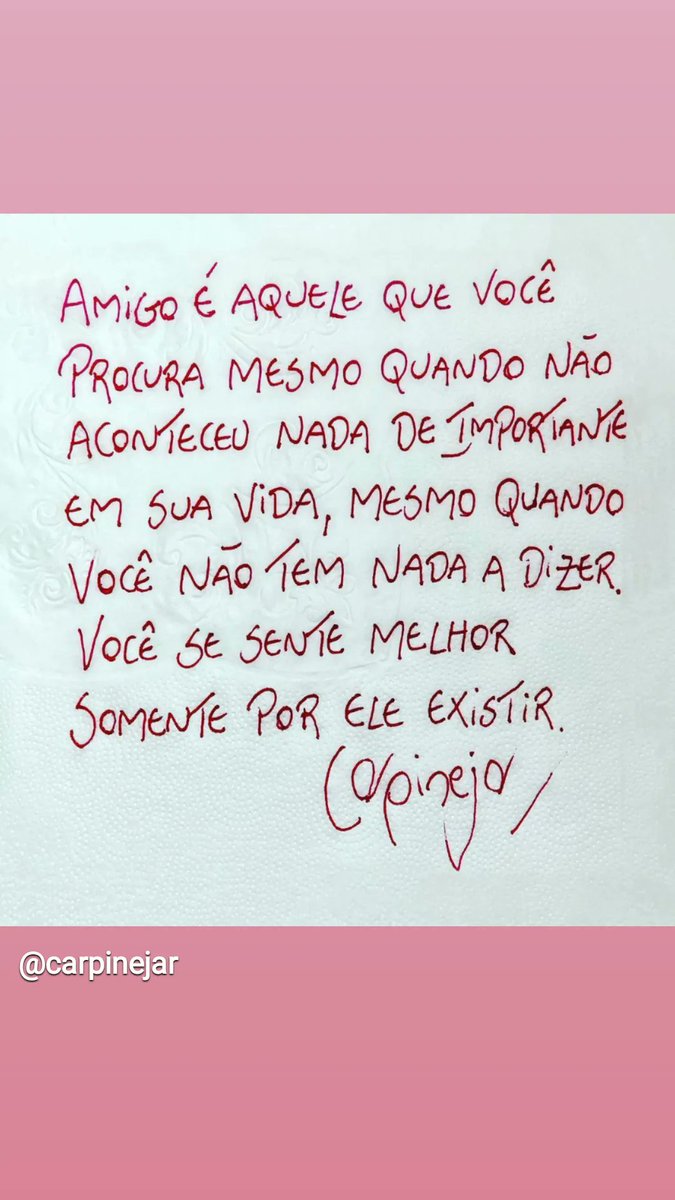 AMIGO É AQUELE QUE VOCÊ
PROCURA MESMO QUANDO NÃO
ACONTECEU NADA DE IMPORTANTE
EM SUA VIDA, MESMO QUANDO
VOCÊ NÃO TEM NADA A DIZER.
VOCÊ SE SENTE MELHOR
SOMENTE POR ELE EXISTIR.
Carpinejar
@carpinejar